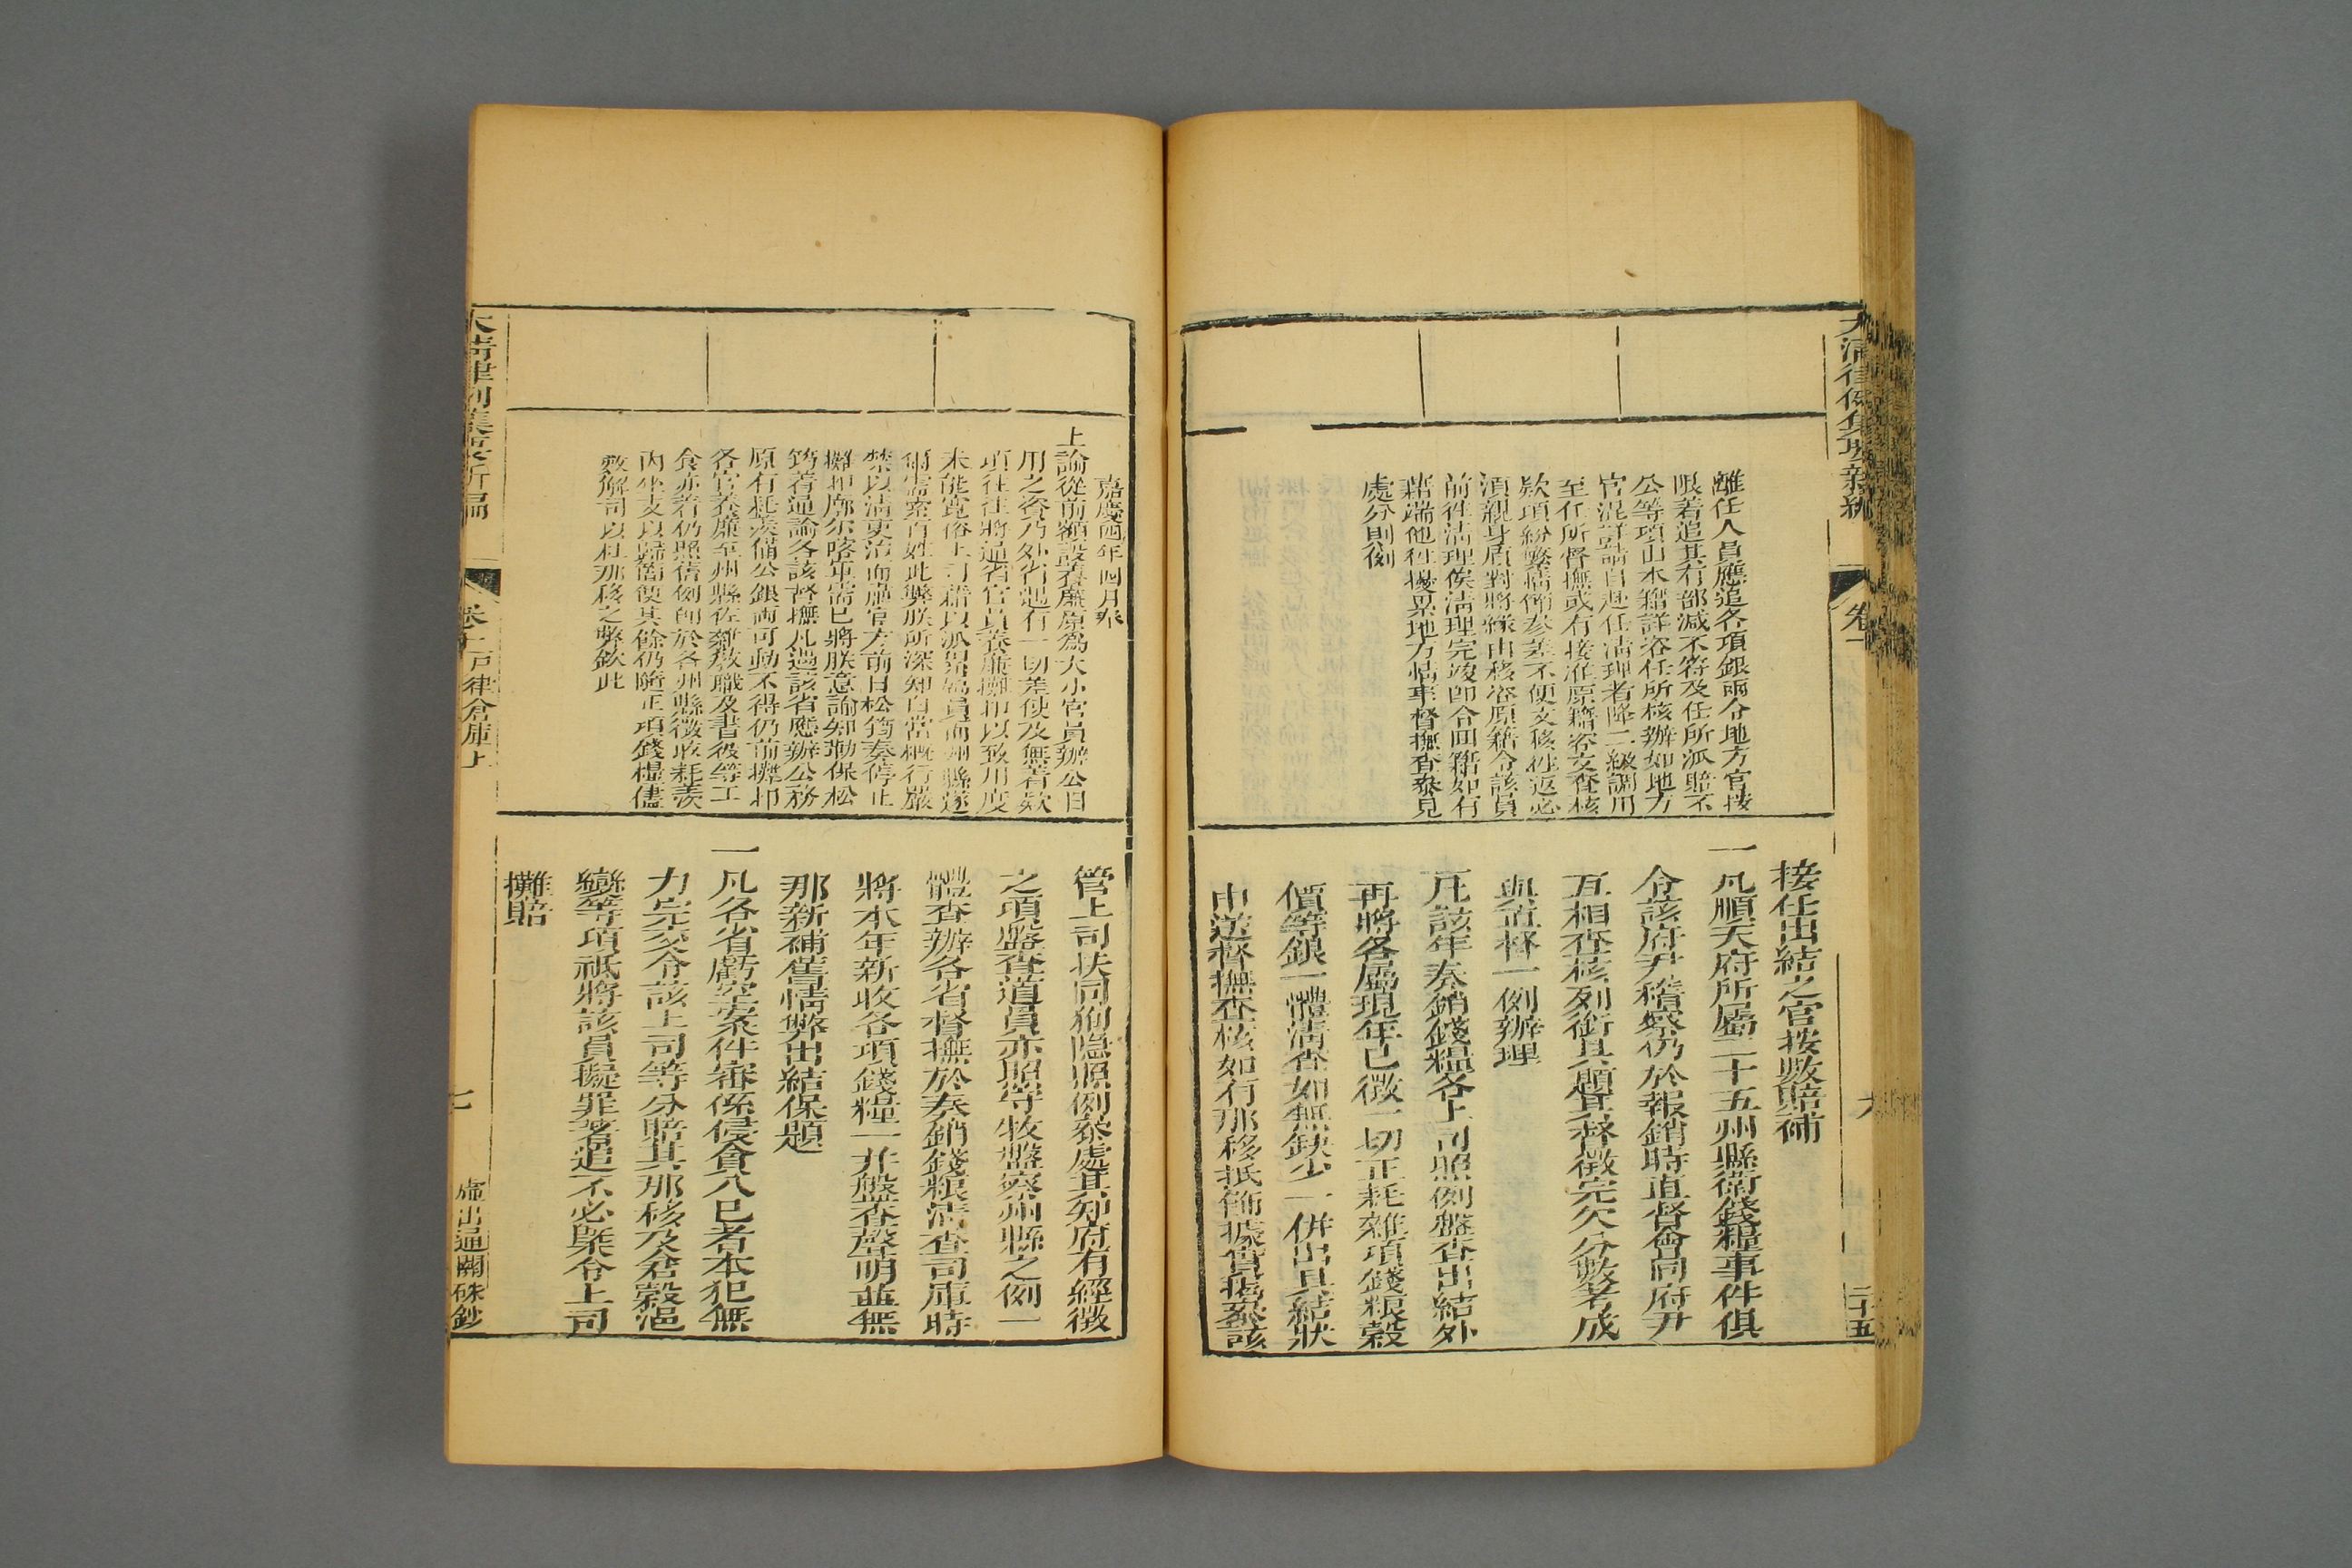 大清律例集要新編
卷十
二十五
離任人員應追各項銀兩令地方官按
限著追其有部減不符及任所派賠不
公等項由本籍詳咨任所核辦如地方
官混詳請自赴任清理者降二級調用
至任所督撫或有接准原籍咨文查核
欵項紛繁情節參差不便文移往返必
須親身質對將緣由移咨原籍令該員
前往清理俟清理完竣卽令回籍如有
藉端他往擾累地方情事督撫查叅見
處分則例
接任出結之官按數賠補
一凡順天府所屬二十五州縣衛錢糧事件俱
令該府尹稽察仍於報銷時直督會同府尹
互相查核列銜具題其督徵完欠分數考成
與直督一例辦理
凡該年奏銷錢糧各上司照例盤查出結外
再將各屬現年已徵一切正耗雜項錢粮穀
價等銀一體清查如無缺少一併出具結狀
申送督撫查核如有那移抵飾據實揭叅該
嘉慶四年四月奉
上諭從前額設養廉原爲大小官員辦公日
用之資乃外省遇有一切差使及無著欵
項往往將通省官員養廉攤扣以致用度
未能寬裕上司藉以派累屬員而州縣遂
爾需索百姓此弊朕所深知自當槪行嚴
禁以清吏治而肅官方前日松筠奏停止
攤扣廓尔喀軍需已將朕意諭知勒保松
筠著通諭各該督撫凡遇該省應辦公務
原有耗羡備公銀兩可動不得仍前攤扣
各官養廉至州縣佐雜敎職及書役等工
食亦著仍照舊例卽於各州縣徵收耗羡
內坐支以歸簡便其餘仍隨正項錢糧儘
數解司以杜那移之弊欽此
管上司扶同狥隱照例叅處其知府有經徵
之項盤查道員亦照守牧盤察州縣之例一
體查辦各省督撫於奏銷錢粮清查司庫時
將本年新收各項錢糧一并盤查聲明並無
那新補舊情弊出結保題
一凡各省虧空案件審係侵貪入已者本犯無
力完交令該上司等分賠其那移及倉穀浥
變等項祗將該員擬罪著追不必槩令上司
攤賠
大清律例集要新編
卷十 戶律倉庫上
七
虛出通關硃鈔